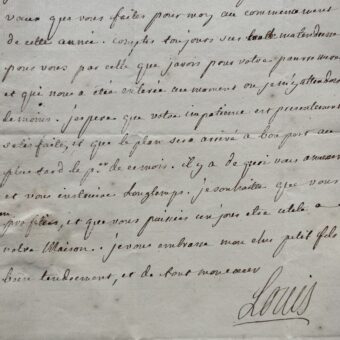 vœux que vous faites pour moy au commencement
de cette année. comptés toujours sur toutte ma tendresse
pour vous par celle que javois pour votre pauvre mere
et qui nous a étée enlevée au moment ou je m'y attendois
le moins. j'espere que votre impatience est presentement
satisfaite, et que le plan sera arrivé a bon port au
plus tard le p.er de ce mois. il y a de quoi vous amuser
et vous instruire longtemps. je souhaitte que vous
en profitiés, et que vous puissiés un jour etre utile a
votre Maison. je vous embrasse mon cher petit fils
bien tendrement, et de tout mon cœur
Louis